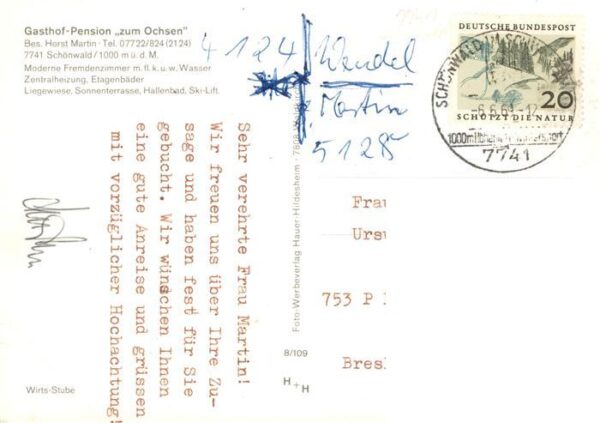 Gasthof-Pension „zum Ochsen"
Bes. Horst Martin · Tel. 07722/824 (2124)
7741 Schönwald / 1000 m ü. d. M.
Moderne Fremdenzimmer m. fl. k. u. w. Wasser
Zentralheizung, Etagenbäder
Liegewiese, Sonnenterrasse, Hallenbad, Ski-Lift.
4124
Wendel
Martin
5128
DEUTSCHE BUNDESPOST
20
SCHÜTZT DIE NATUR
7741
Sehr verehrte Frau Martin!
Wir freuen uns über Ihre Zu-
sage und haben fest für Sie
gebucht. Wir wünschen Ihnen
eine gute Anreise und grüssen
mit vorzüglicher Hochachtung!
Foto-Werbeverlag Hauer-Hildesheim
8/109
H + H
Wirts-Stube
753 P